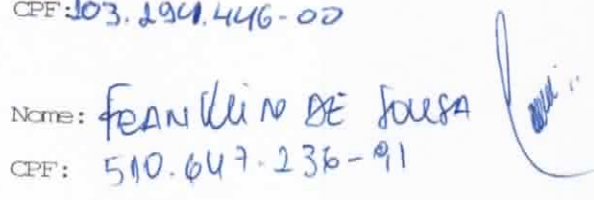 CPF: 103.294.446-00
Nome: FRANKLIN DE SOUSA
CPF: 510.647.236-91